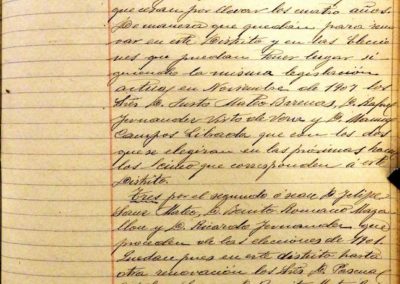 que cesan por llevar los cuatro años.
De manera que quedan para reno
var en este Distrito y en las Eleccio
nes que puedan tener lugar si
guiendo la misma legislación
activa en Noviembre de 1907 los
Sres D. Justo Mateo Barenas, D. Rafael
Fernandez Visto de Vera y D. Manuel
Campos Librada que con los dos
que se elegiran en las proximas hacen
los cinco que corresponden á este
Distrito.
Tres por el segundo ó sean D. Felipe
Sanz Mateo, D. Benito Romano Maga
llon y D. Ricardo Fernandez que
proceden de las elecciones de 1901.
Quedan pues en este distrito hasta
otra renovación los Sres D. Pascua